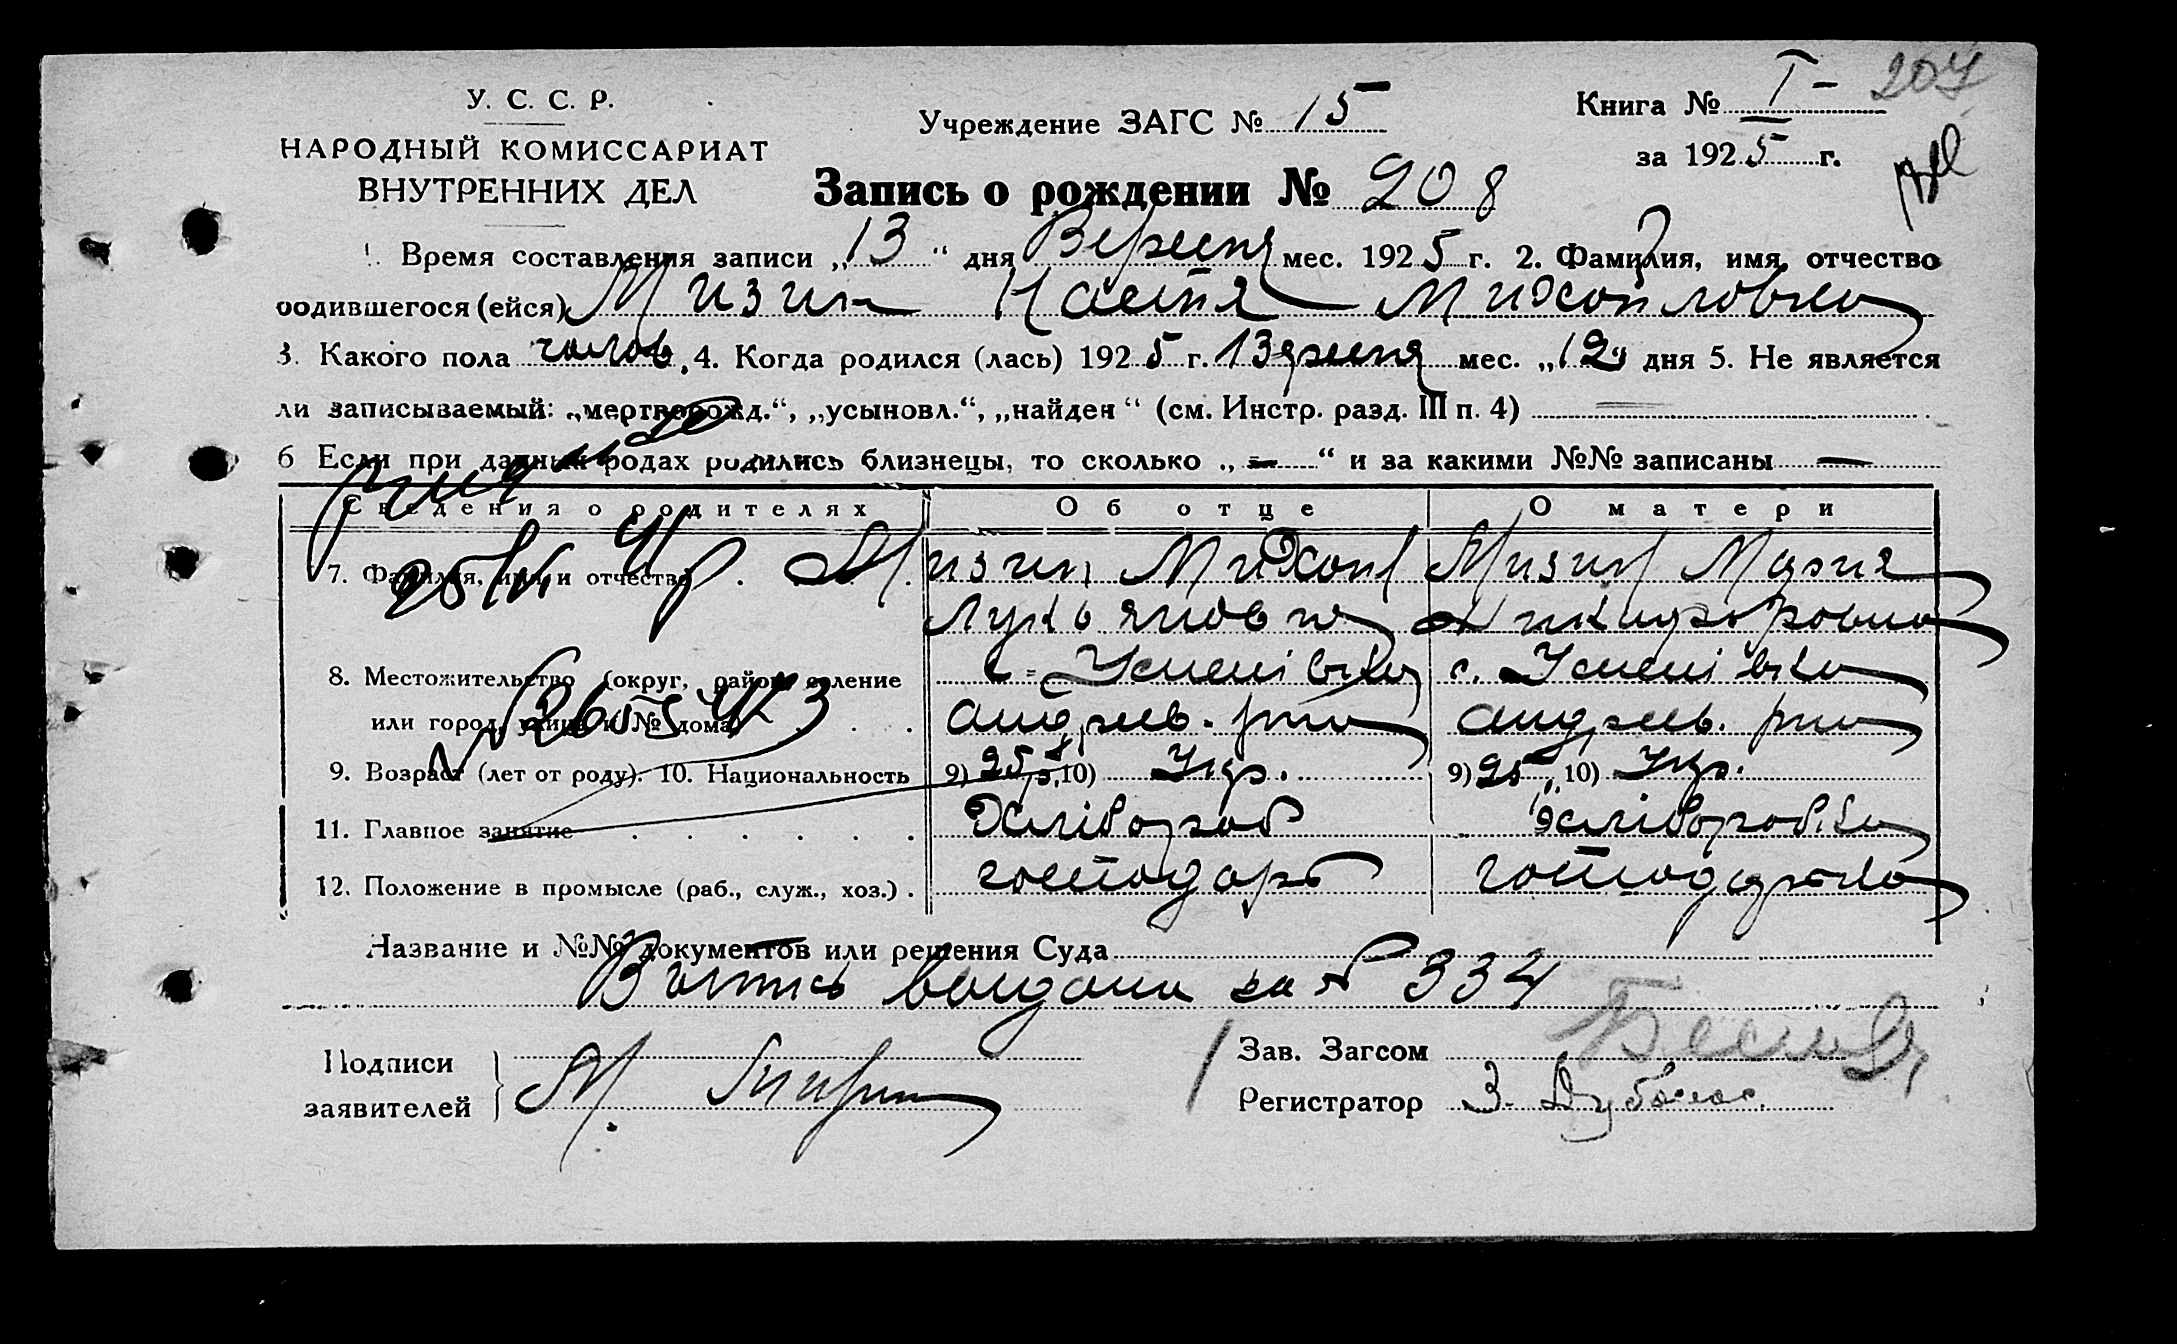 У. С. С. Р.
НАРОДНЫЙ КОМИССАРИАТ
ВНУТРЕННИХ ДЕЛ
Учреждение ЗАГС № 15
Книга № I - 207
за 1925 г.
Запись о рождении № 208
1. Время составления записи „13“ дня Вересня мес. 1925 г. 2. Фамилия, имя, отчество
родившегося (ейся) Мизин Настя Михайловна
3. Какого пола 4. Когда родился (лась) 1925 г. Вересня мес. „12“ дня 5. Не является
ли записываемый: „мертворожд.“, „усыновл.“, „найден“ (см. Инстр. разд. III п. 4)
6 Если при данных родах родились близнецы, то сколько „—“ и за какими №№ записаны —
Сведения о родителях Об отце О матери
7. Фамилия, имя и отчество . . Мизин Михаил Мизин Мария
Лукьянович
8. Местожительство (округ, район, селение с. Успенівка с. Успенівка
или город, улица и № дома) . . . Андреев. р-ну Андреев. р-ну
9. Возраст (лет от роду). 10. Национальность 9) 25 10) Укр. 9) 25 10) Укр.
11. Главное занятие . . . . . . Хлібороб Хліборобка
12. Положение в промысле (раб., служ., хоз.) . господарь господарька
Название и №№ документов или решения Суда
Выпись выдана за № 334
Подписи
заявителей
Зав. Загсом
Регистратор З.